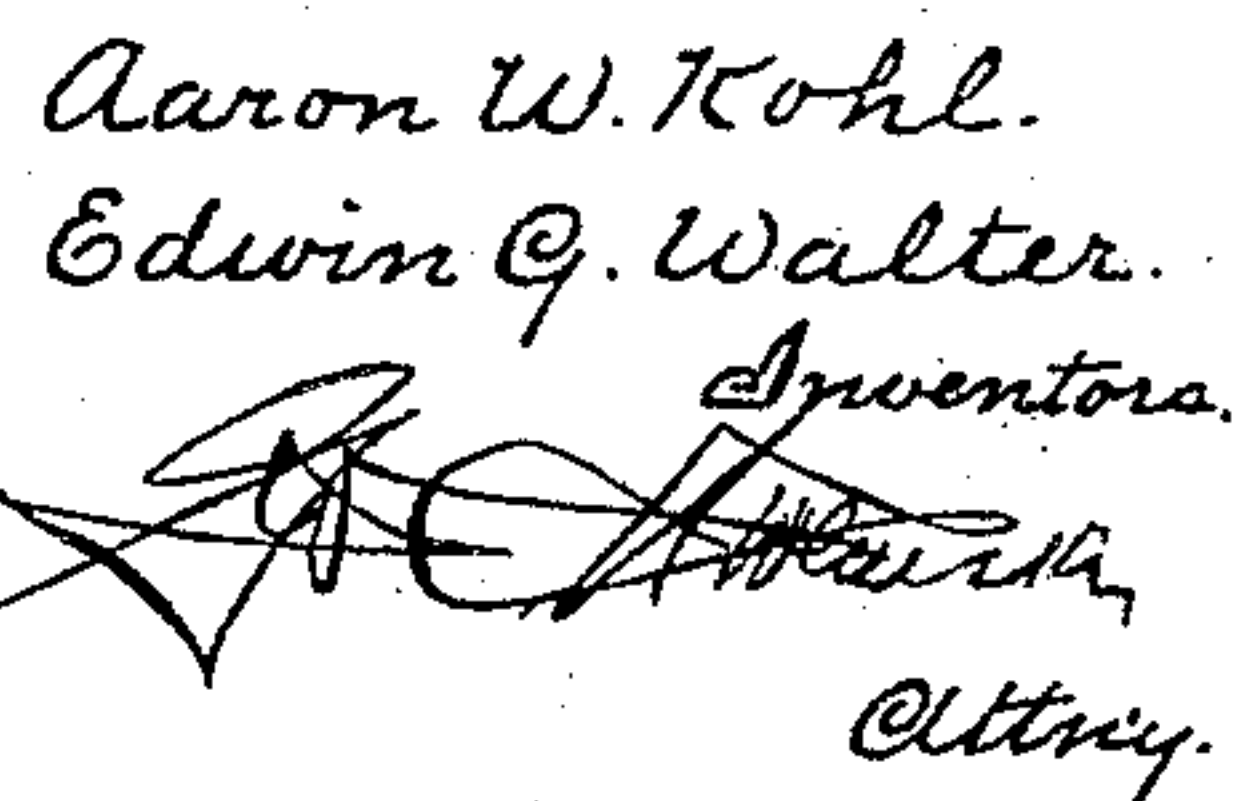 Aaron W. Kohl.
Edwin G. Walter.
Inventors.
Attn'y.